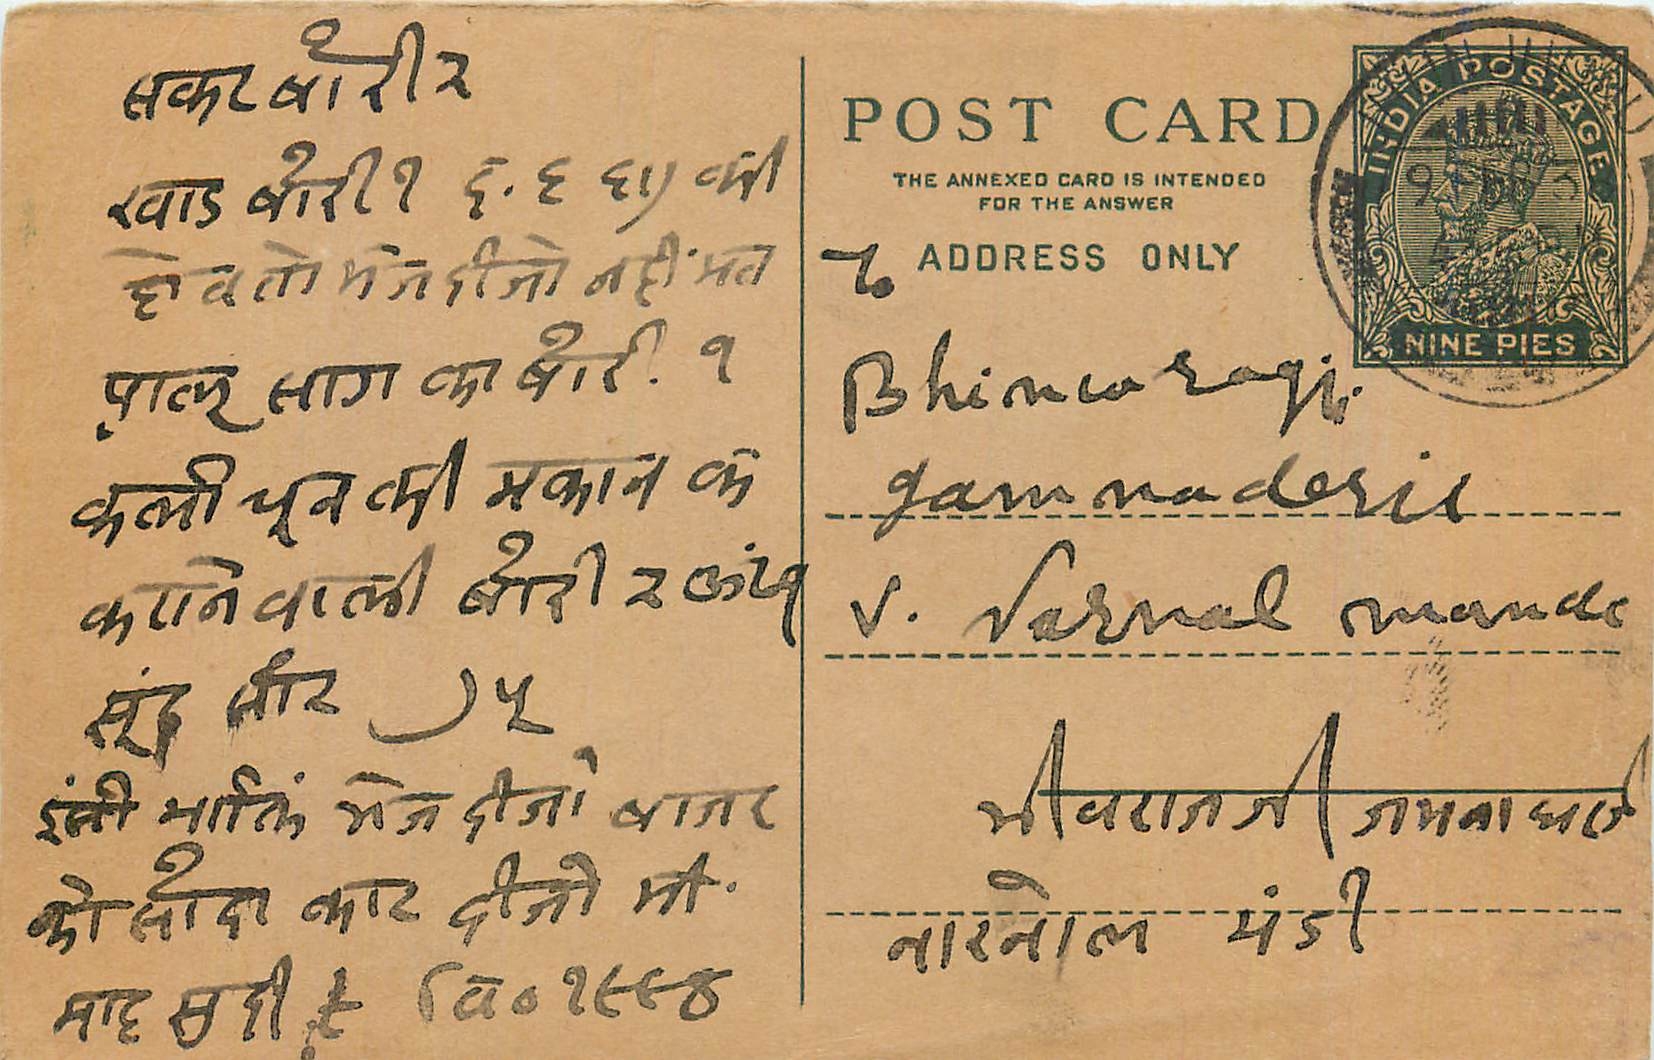 सकर बोरी २
खाड बोरी १ ६. ६ ६।) की
होव तो भेज दीजो नहीं मत
पालू साग का बोरी. १
कली चून की मकान के
कराने वाली बोरी २
सूंद सीर ) ५
भेज दीजो बाजार
को सौदा कार दीजो मी.
माह सुदी ९ वि० १९९४
POST CARD
THE ANNEXED CARD IS INTENDED
FOR THE ANSWER
ADDRESS ONLY
INDIA POSTAGE
NINE PIES
To
Bhinwaragji
V. Narnal mande
नारनोल मंडी